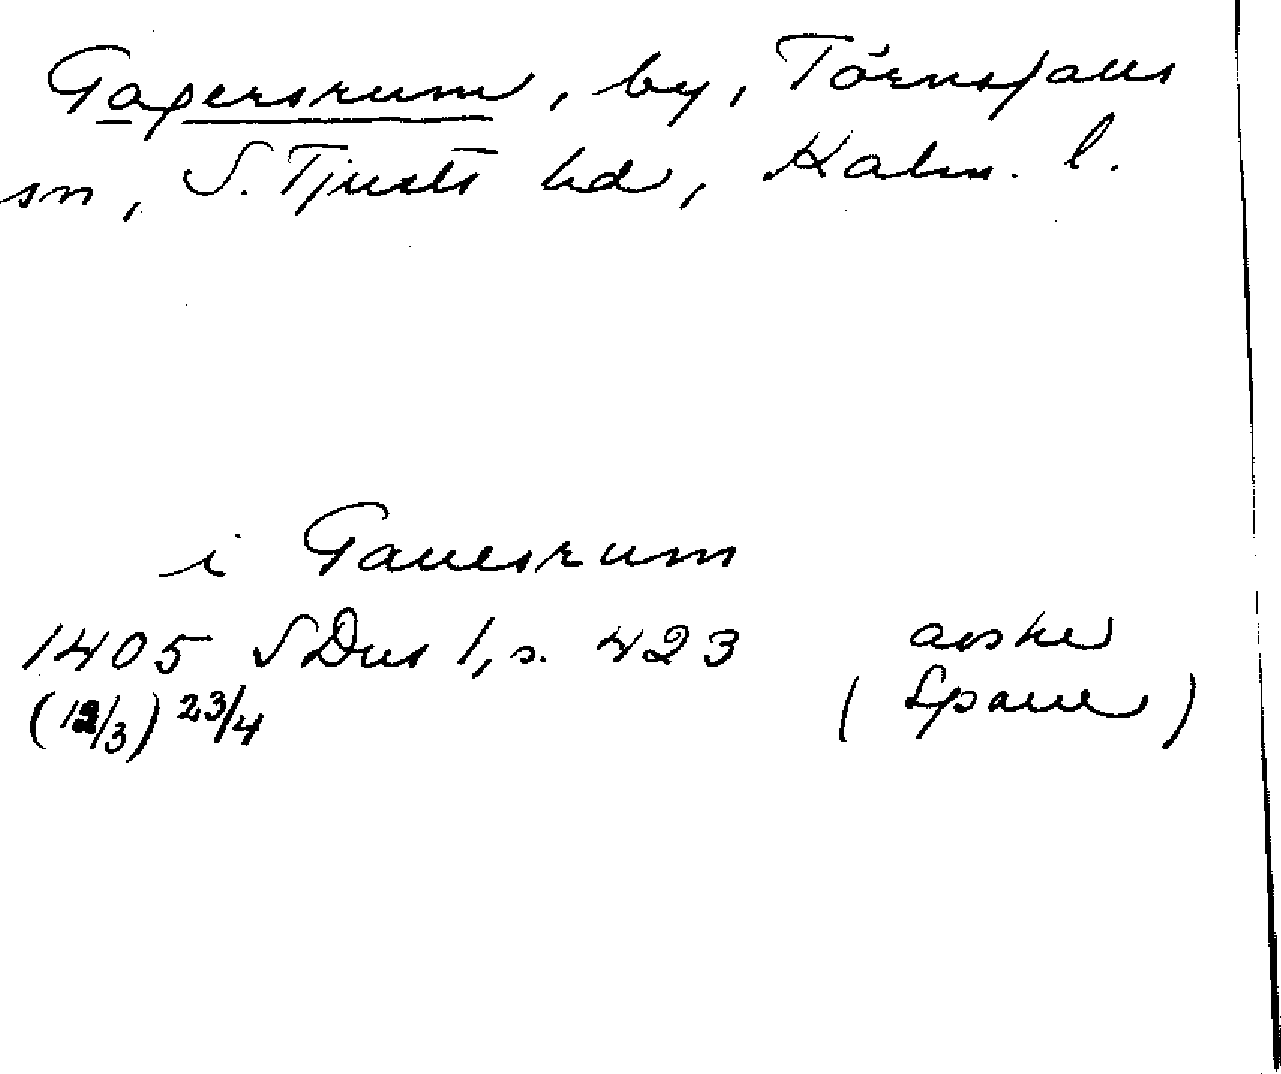 Gagersrum, by, Törnsfalls
sn, S. Tjusts hd, Kalm. l.
i Gauesrum
1405 SDns 1, s. 423 avskr
(12/3) 23/4 (Spaur)